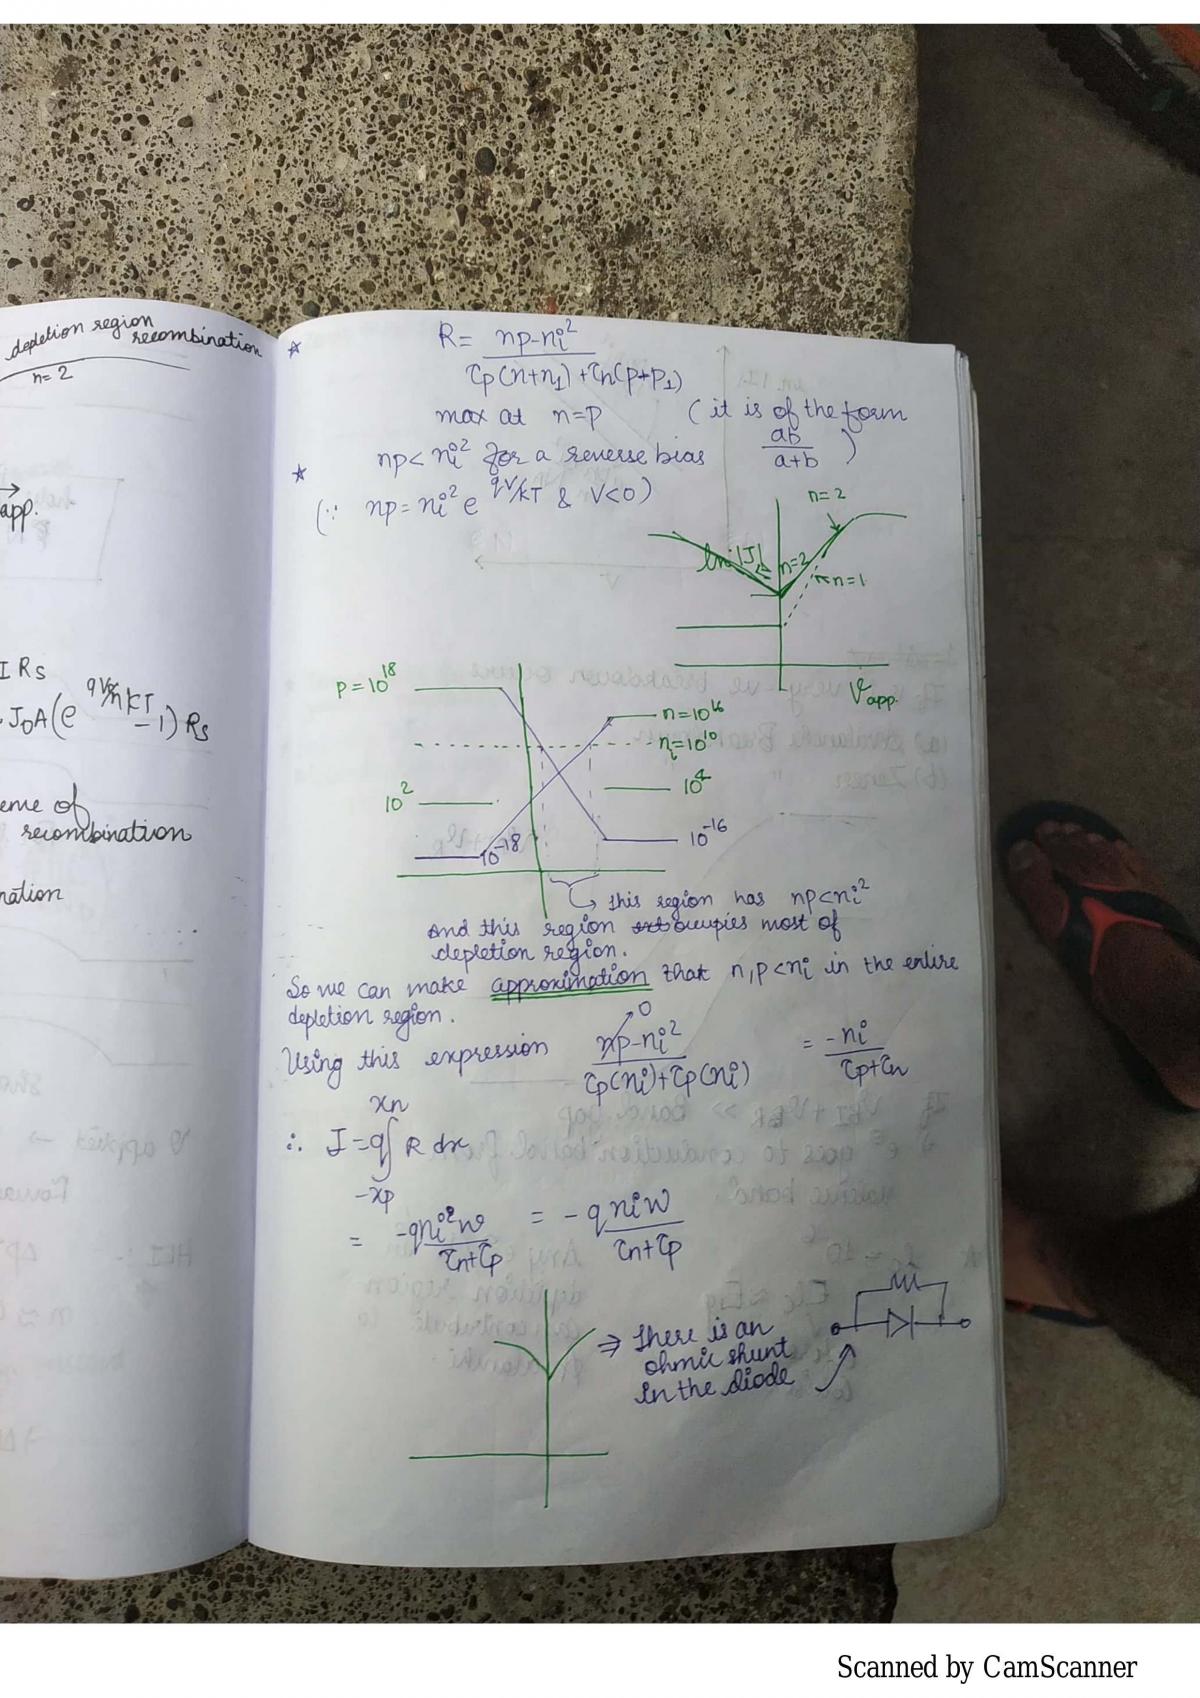 depletion region
recombination
n=2
app.
I Rs
J₀A(e^qV/nkT − 1) Rs
eme of
recombination
nation
☆ R = (np − nᵢ²) / (τp(n+n₁) + τn(p+p₁))
max at n=p (it is of the form ab/(a+b))
☆ np < nᵢ² for a reverse bias
(∵ np = nᵢ² e^qV/kT & V<0)
n=2
ln|J|
n=2
n=1
Vapp.
p=10¹⁸
n=10¹⁶
nᵢ=10¹⁰
10²
10⁴
10⁻¹⁸
10⁻¹⁶
↳ this region has np<nᵢ²
And this region occupies most of
depletion region.
So we can make approximation that n,p<nᵢ in the entire
depletion region.
Using this expression (np→0 − nᵢ²) / (τp(nᵢ)+τp(nᵢ)) = −nᵢ / (τp+τn)
∴ J = q ∫ from −xp to xn R dx
= −qnᵢ²w / (τn+τp) = − q nᵢ w / (τn+τp)
⇒ There is an
ohmic shunt
in the diode
Scanned by CamScanner